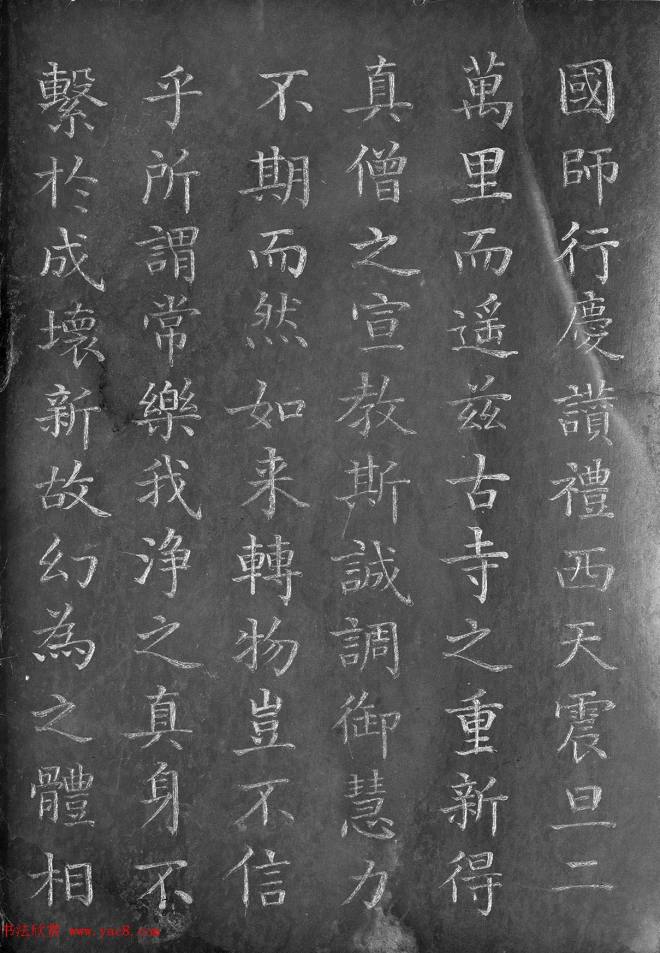 國師行慶讚禮西天震旦二
萬里而遥兹古寺之重新得
真僧之宣教斯誠調御慧力
不期而然如来轉物豈不信
乎所謂常樂我浄之真身不
繫於成壞新故幻為之體相
书法欣赏 www.yac8.com